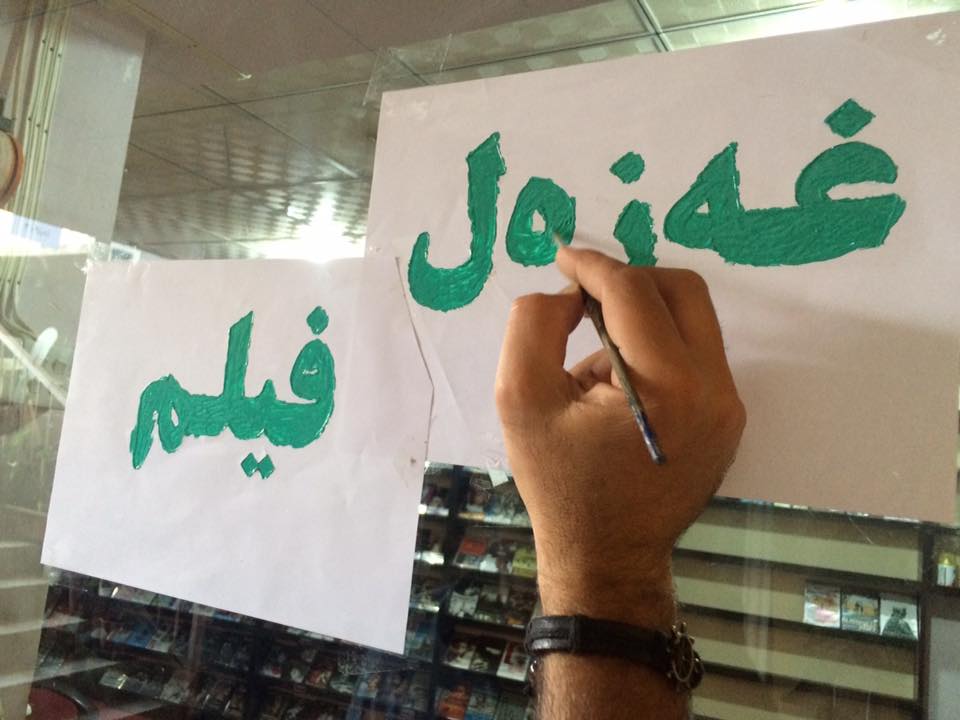 غەزەل
فیلم